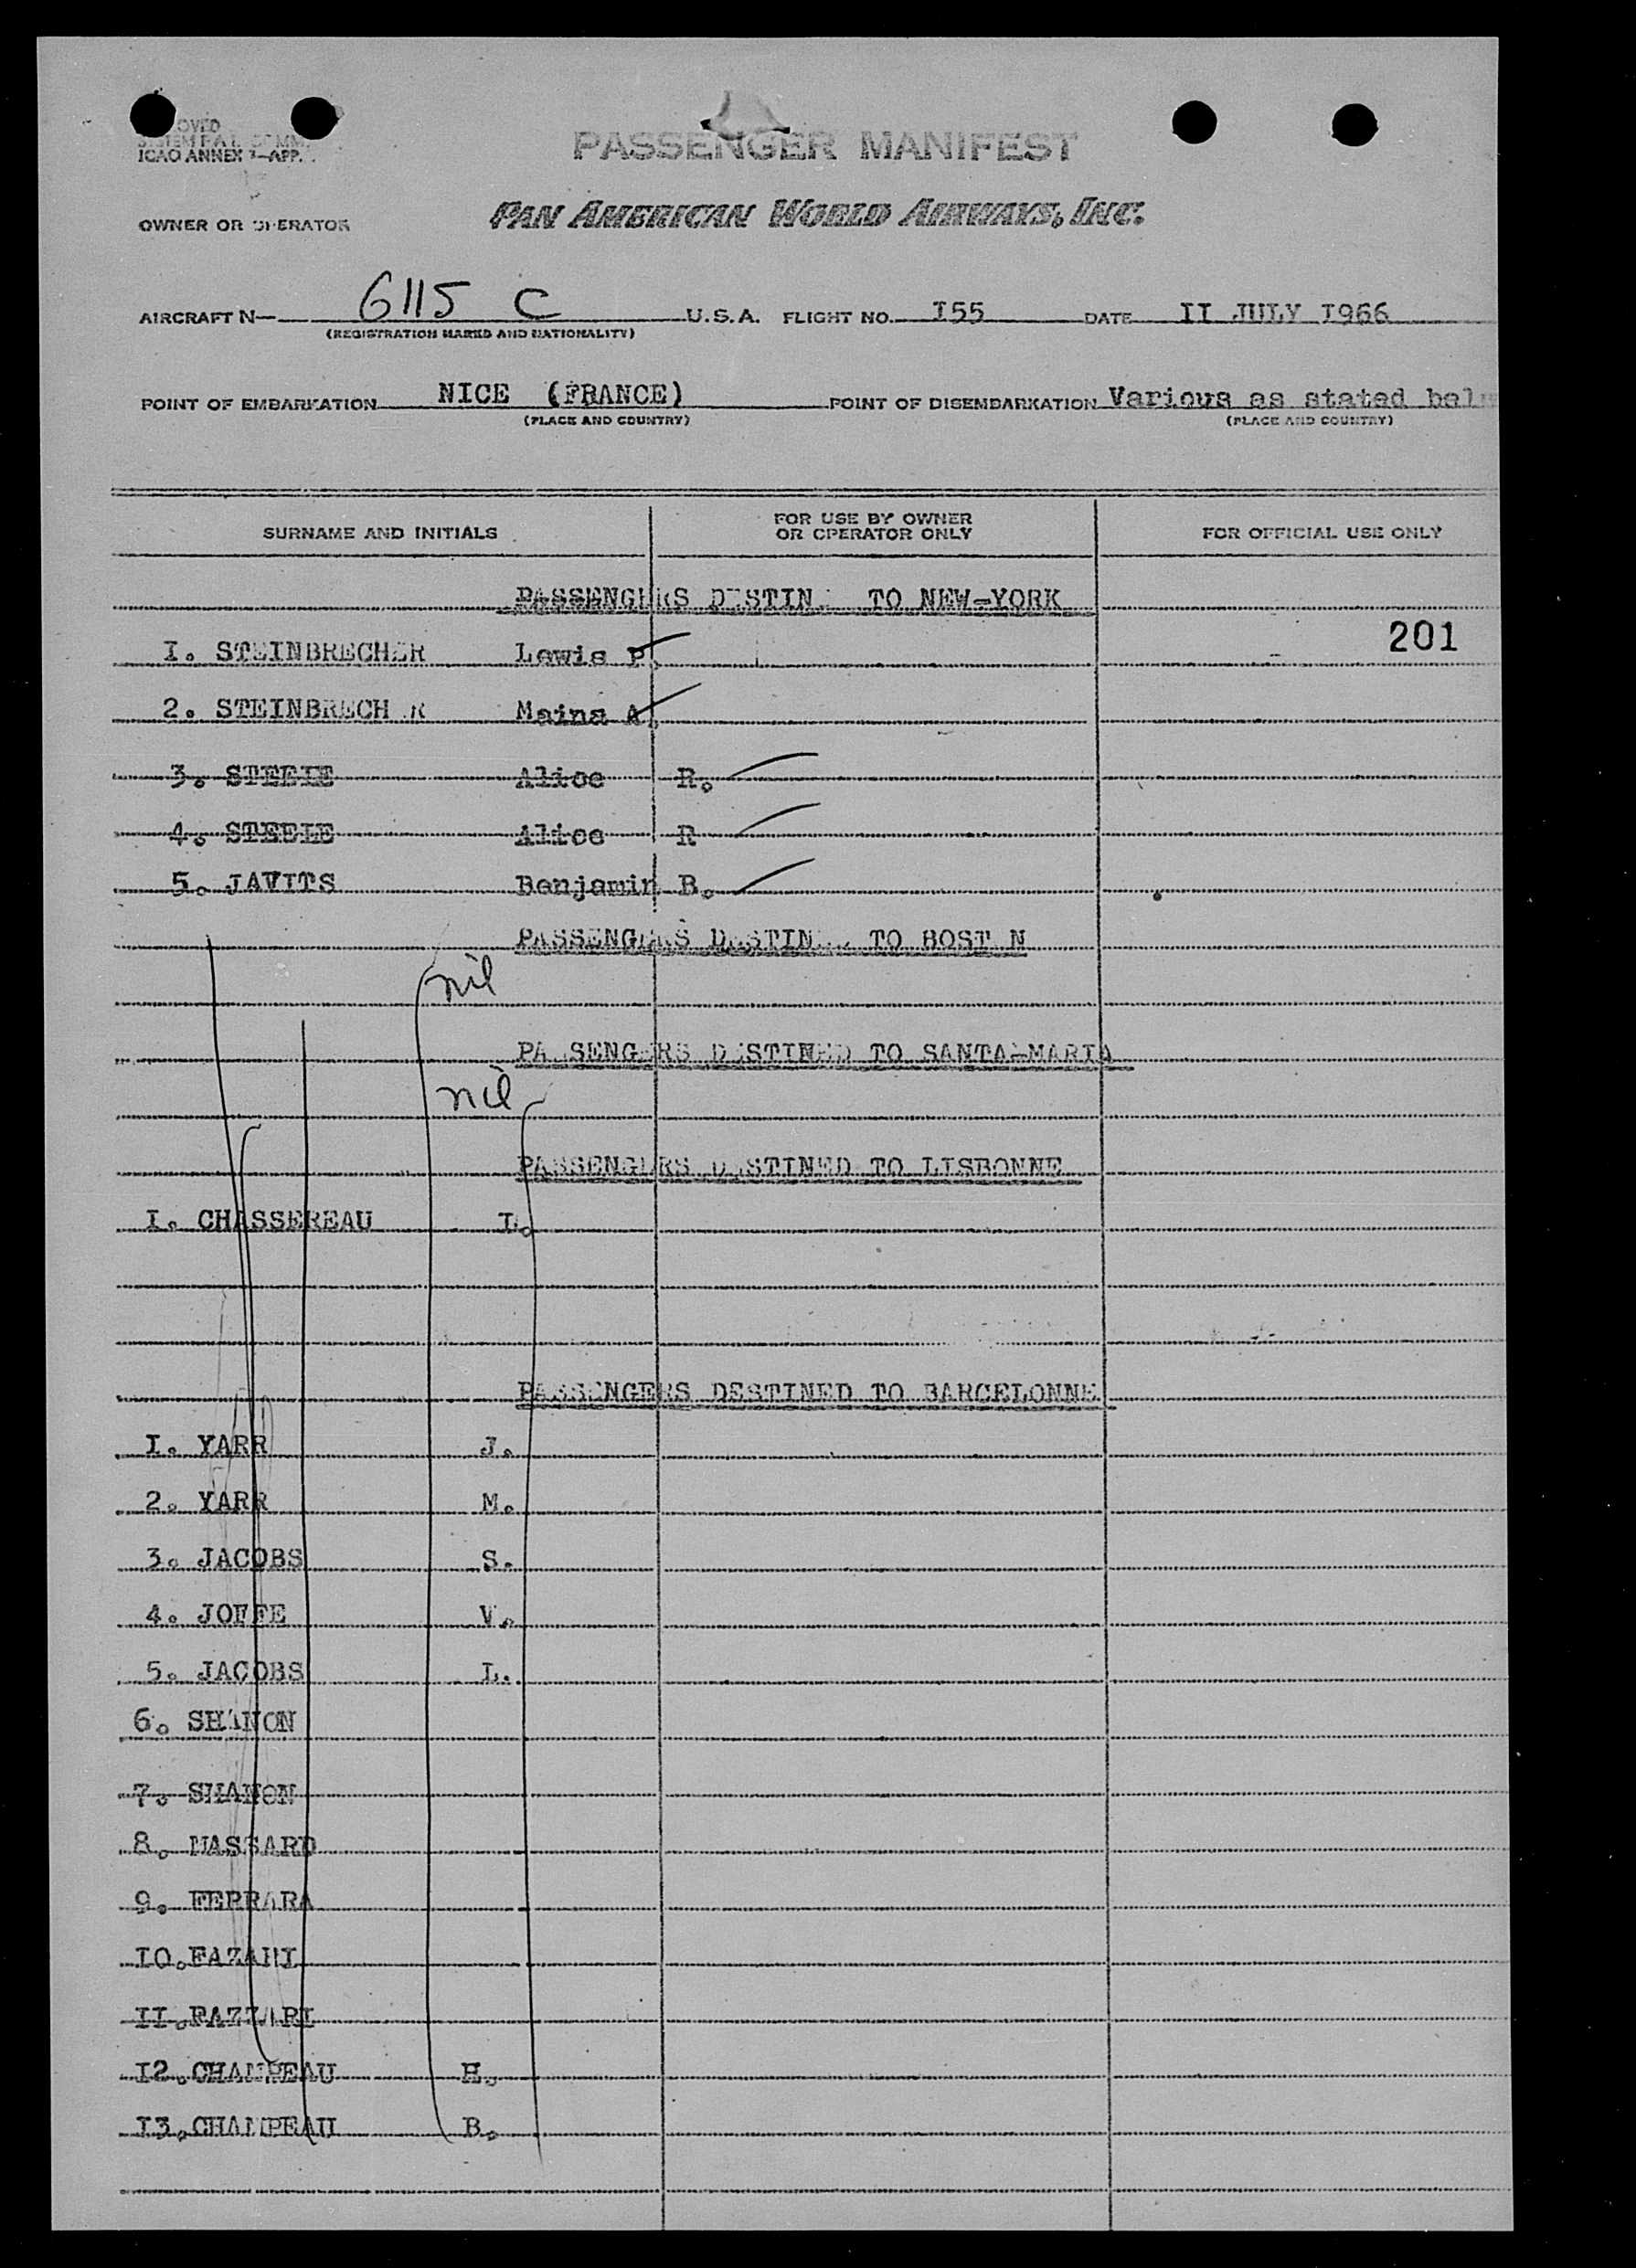 OVED
ICAO ANNEX 9—APP.
PASSENGER MANIFEST
OWNER OR OPERATOR
PAN AMERICAN WORLD AIRWAYS, INC.
AIRCRAFT N— 6115 C U.S.A. FLIGHT NO. I55 DATE II JULY I966
(REGISTRATION MARKS AND NATIONALITY)
POINT OF EMBARKATION NICE (FRANCE) POINT OF DISEMBARKATION Various as stated bel
(PLACE AND COUNTRY) (PLACE AND COUNTRY)
SURNAME AND INITIALS FOR USE BY OWNER OR OPERATOR ONLY FOR OFFICIAL USE ONLY
PASSENGERS DESTINED TO NEW-YORK
201
I. STEINBRECHER Lewis P.
2. STEINBRECHER Maina A.
3. STEELE Alice R.
4. STEELE Alice R
5. JAVITS Benjamin B.
PASSENGERS DESTINED TO BOSTON
nil
PASSENGERS DESTINED TO SANTA-MARIA
nil
PASSENGERS DESTINED TO LISBONNE
I. CHASSEREAU L.
PASSENGERS DESTINED TO BARCELONNE
I. YARR J.
2. YARR M.
3. JACOBS S.
4. JOFFE V.
5. JACOBS L.
6. SHANON
7. SHANON
8. MASSARD
9. FERRARA
I0.FAZARI
II.FAZZARI
I2.CHAMPEAU H.
I3.CHAMPEAU B.